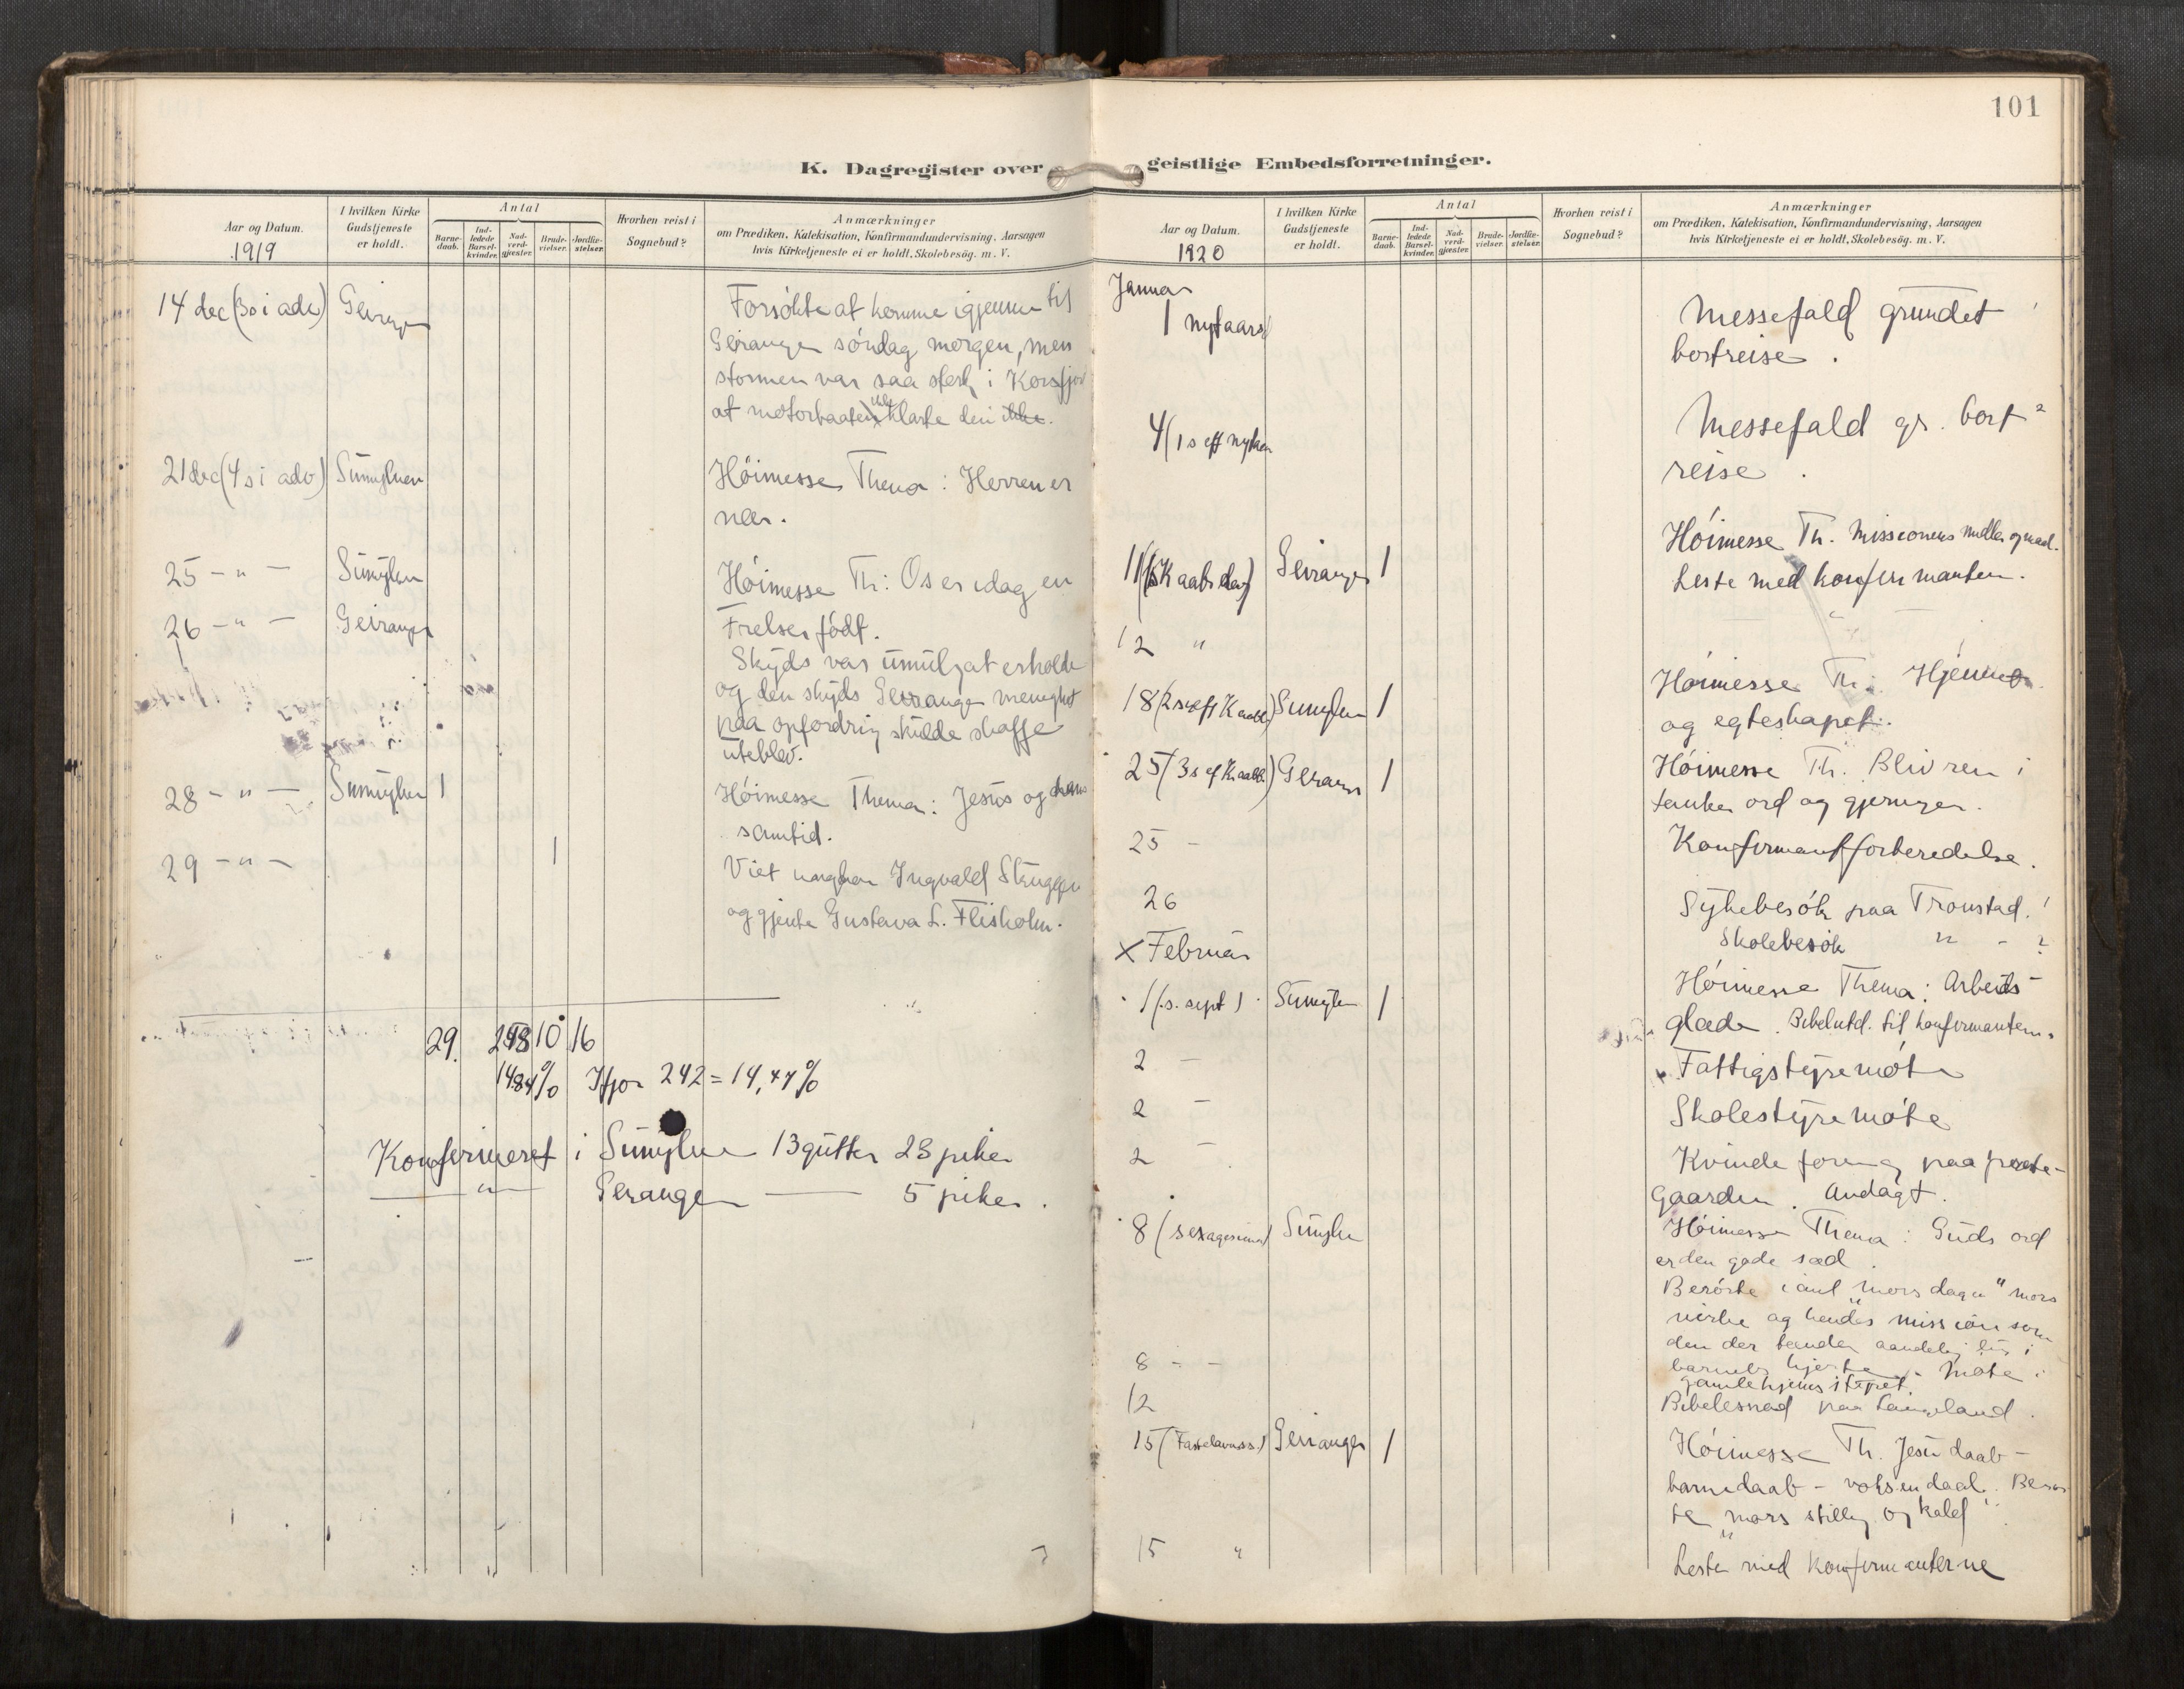 101
K. Dagregister over geistlige Embedsforretninger.
Aar og Datum.
1919
I hvilken Kirke Gudstjeneste er holdt.
Antal
Barne-daab.
Ind-ledede Barsel-kvinder.
Nad-verd-gjæster.
Brude-vielser.
Jordfæ-stelser.
Hvorhen reist i Sognebud?
Anmærkninger
om Prædiken, Katekisation, Konfirmandundervisning, Aarsagen
hvis Kirketjeneste ei er holdt, Skolebesög. m. V.
14 dec (3 s i adv) Geiranger Forsökte at komme igjennem til
Geiranger söndag morgen, men
stormen var saa sterk i Korsfjor
at motorbaaten ikke klarte den ikke.
21 dec (4 s i adv) Sunnylven Höimesse Thema: Herren er
nær.
25 - " - Sunnylven Höimesse Th: Os er idag en
Frelser födt.
26 - " - Geiranger
Skyds var umulig at erholde
og den skyds Geiranger menighet
paa opfordring skulde skaffe
uteblev.
28 - " - Sunnylven 1 Höimesse Thema: Jesus og hans
samtid.
29 - " - 1 Viet ungkar Ingvald
og gjente Gustava L. Flisholm.
29. 248 10 16
14,84% Ifjor 242 = 14,47%
Konfirmeret i Sunnylven 13 gutter 23 piker
" Geiranger 5 piker.
Aar og Datum.
1920
I hvilken Kirke Gudstjeneste er holdt.
Antal
Barne-daab.
Ind-ledede Barsel-kvinder.
Nad-verd-gjæster.
Brude-vielser.
Jordfæ-stelser.
Hvorhen reist i Sognebud?
Anmærkninger
om Prædiken, Katekisation, Konfirmandundervisning, Aarsagen
hvis Kirketjeneste ei er holdt, Skolebesög. m. V.
Januar
1 nytaarsd Messefald grundet
bortreise.
4 (1 s eft nytaar Messefald gr. bort
reise.
11 (Kaabsdag) Geiranger 1 Höimesse Th. Missionens midler og maal.
Leste med konfirmanten.
12 " " -
18 (2 s eft Kaabb) Sunnylven 1 Höimesse Th: Hjemmet
og egteskapet.
25 (3 s ef Kaabb.) Geiranger 1 Höimesse Th. Bliv ren i
tanker ord og gjerninger.
25 - Konfirmantforberedelse.
26 Sykebesök paa Tronstad.
Skolebesök " -
x Februar
1 (s. sept) Sunnylven 1 Höimesse Thema: Arbeids-
glæde. Bibelutd. til konfirmanten.
2 - Fattigstyremöte
2 - Skolestyremöte
2 - Kvindeforening paa preste-
gaarden. Andagt.
8 (sexagesima) Sunnylven Höimesse Thema: Guds ord
er den gode sæd.
Berörte i anl "morsdagen" mors
virke og hendes mission som
den der tænder aandelig lys i
barnets hjerte.
8 - - Möte i
gamlehjemsstyret.
12 Bibellesning paa Langeland.
15 (Fastelavnss.) Geiranger 1 Höimesse Th. Jesu daab -
barnedaab - voksendaab. Berör
te "mors stilling og kald".
15 " Leste med konfirmanterne